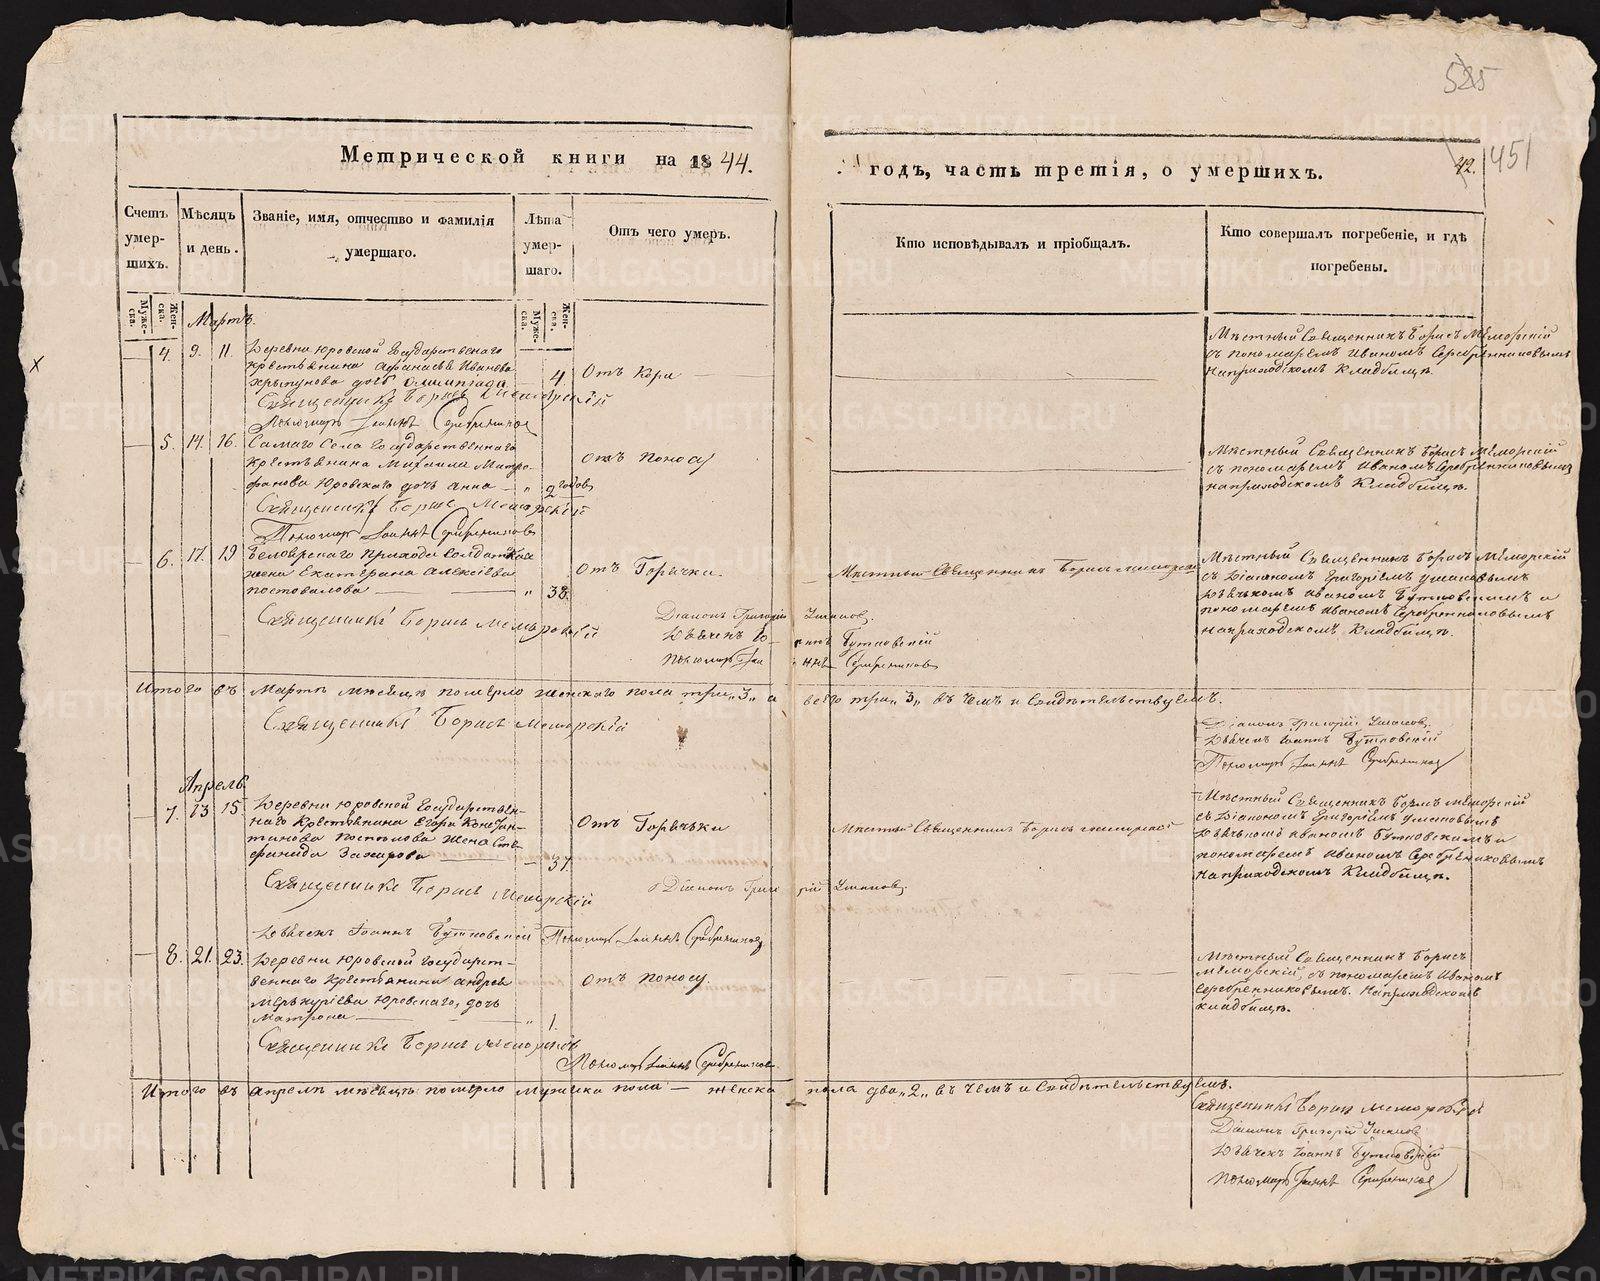 525
451
42.
Метрической книги на 1844.
годъ, часть третія, о умершихъ.
Счетъ умер-шихъ.
Мѣсяцъ и день.
Званіе, имя, отчество и фамилія умершаго.
Лѣта умер-шаго.
Отъ чего умеръ.
Кто исповѣдывалъ и пріобщалъ.
Кто совершалъ погребеніе, и гдѣ погребены.
Муже-ска.
Жен-ска.
Муже-ска.
Жен-ска.
Мартъ.
4. 9. 11.
Деревни Юровской Государственнаго
крестьянина Афанасья Иванова
дочь Олимпіада 4.
Отъ Кори
Мѣстный Священникъ Борисъ Меморскій
съ пономаремъ Иваномъ Серебренниковымъ
на приходскомъ Кладбищѣ.
Священникъ Борисъ Меморскій
Пономарь Іоаннъ Серебренниковъ
5. 14. 16.
Самаго Села Государственнаго
Крестьянина Михаила Митро-
фанова Юровскаго дочь Анна " 2 годовъ
Отъ поносу
Мѣстный Священникъ Борисъ Меморскій
съ пономаремъ Иваномъ Серебренниковымъ
на приходскомъ Кладбищѣ.
Священникъ Борисъ Меморскій
Пономарь Іоаннъ Серебренниковъ
6. 17. 19
Беловрскаго прихода Солдатская
жена Екатерина Алексіева
Постовалова " 38.
Отъ Горячки.
Мѣстный Священникъ Борисъ Меморскій
Мѣстный Священникъ Борисъ Меморскій
съ Діакономъ Григоріемъ Ушаковымъ
Дьячкомъ Иваномъ Бутковскимъ и
пономаремъ Иваномъ Серебренниковымъ
на приходскомъ Кладбищѣ.
Священникъ Борисъ Меморскій
Діаконъ Григорій Ушаковъ.
Дьячекъ Іоаннъ Бутковскій
Пономарь Іоаннъ Серебренниковъ
Итого въ Мартѣ мѣсяцѣ померло женскаго пола три "3" а всего три "3" въ чемъ и свидѣтельствуемъ.
Священникъ Борисъ Меморскій
Діаконъ Григорій Ушаковъ.
Дьячекъ Іоаннъ Бутковскій
Пономарь Іоаннъ Серебренниковъ
Апрель
7. 13 15.
Деревни Юровской Государствен-
наго Крестьянина Егора Констан-
тинова жена Сте-
фанида Захарова 37.
Отъ Горячьки
Мѣстный Священникъ Борисъ Меморской
Мѣстный Священникъ Борисъ Меморскій
съ Діакономъ Григоріемъ Ушаковымъ
Дьячкомъ Иваномъ Бутковскимъ и
пономаремъ Иваномъ Серебренниковымъ
на приходскомъ Кладбищѣ.
Священникъ Борисъ Меморскій
Діаконъ Григорій Ушаковъ.
Дьячекъ Іоаннъ Бутковскій Пономарь Іоаннъ Серебренниковъ
8. 21. 23.
Деревни Юровской Государст-
веннаго Крестьянина Андрея
Меркуріева Юровскаго, дочь
Матрона " 1.
Отъ поносу.
Мѣстный Священникъ Борисъ
Меморскій, съ пономаремъ Иваномъ
Серебренниковымъ. На приходскомъ
кладбищѣ.
Священникъ Борисъ Меморскій
Пономарь Іоаннъ Серебренниковъ
Итого въ Апрелѣ мѣсяцѣ померло мужска пола — женска пола два "2" въ чемъ и свидѣтельствуемъ.
Священникъ Борисъ Меморскій
Діаконъ Григорій Ушаковъ
Дьячекъ Іоаннъ Бутковскій
Пономарь Іоаннъ Серебренниковъ
METRIKI.GASO-URAL.RU